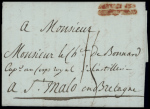 A Monsieur
Monsieur le Ch.er de Bonnand
Cap.e au Corps royal
A St. Malo en Bretagne